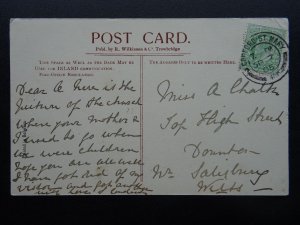 POST CARD.
Publ. by R. Wilkinson & Co. Trowbridge
THIS SPACE AS WELL AS THE BACK MAY BE
USED FOR INLAND COMMUNICATION.
POST OFFICE REGULATION.
THE ADDRESS ONLY TO BE WRITTEN HERE.
ST MARY
Dear A here is the
Picture of the church
where your mother &
I used to go when
we were children
hope you are all well
I have got rid of my
visitors and
Miss A Chalk
Top High Street
Downton
Nr Salisbury
Wilts